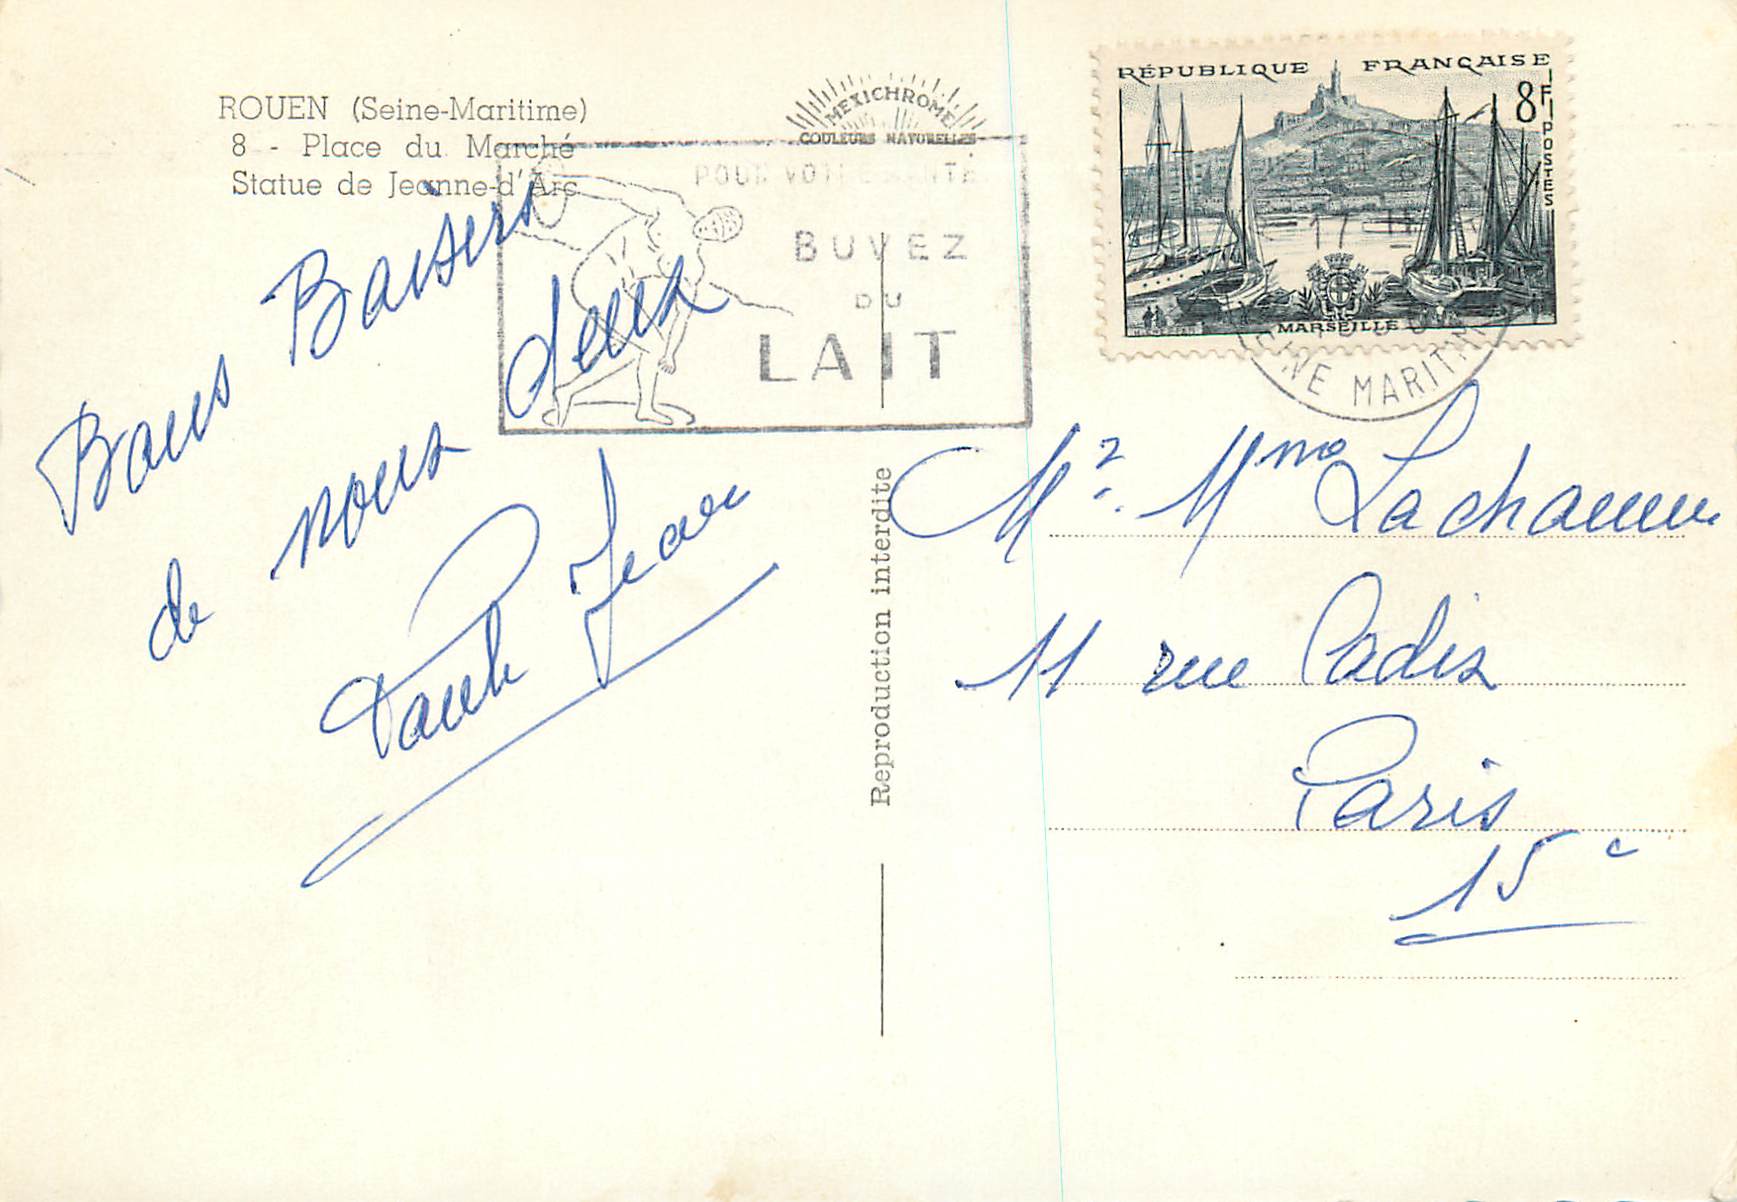 ROUEN (Seine-Maritime)
8 - Place du Marché
Statue de Jeanne-d'Arc
MEXICHROME
COULEURS NATURELLES
POUR VOTRE SANTÉ
BUVEZ
DU
LAIT
RÉPUBLIQUE FRANÇAISE
8F
POSTES
MARSEILLE
17
SEINE MARITIME
Bons Baisers
de nous deux
Jean
Reproduction interdite
Mr. Mme
11 rue Cadix
Paris
15e